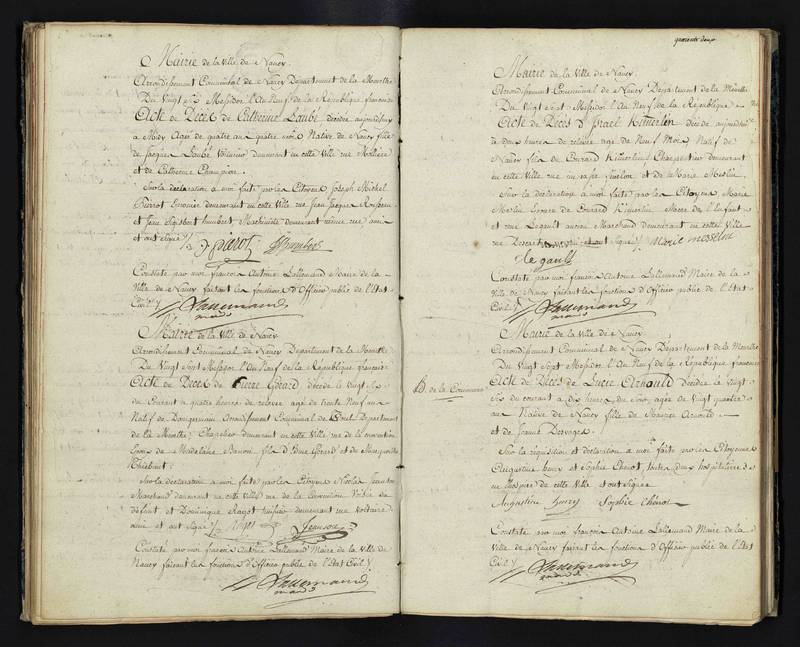 Mairie de la ville de Nancy.
Arrondissement Communal de Nancy Département de la Meurthe
Du Vingt Messidor l'An Neuf de la République francaise
Acte de Décès de Catherine Laubé décédée aujourd'huy
à Midy Agée de quatre ans quatre mois Native de Nancy fille
de Jacques Laubé Voiturier demeurant en cette Ville rue Moliere
et de Catherine Champion.
Sur la déclaration à moi faite par les Citoyens Joseph Michel
Pierrot demeurant en cette ville rue Jean Jacque Rousseau
et Jean humbert Machiniste demeurant même rue amis
et ont signé /.
Pierrot humbert
Constaté par moi françois Antoine Lallemand Maire de la
Ville de Nancy faisant les fonctions d'Officier public de l'Etat
Civil /. Lallemand
Mairie de la ville de Nancy
Arrondissement Communal de Nancy Département de la Meurthe
Du Vingt Sept Messidor l'An Neuf de la République francaise
Acte de Décès de Pierre Gérard décédé le Vingt Six
du Courant a quatre heures de relevée agé de trente Neuf ans
Natif de Domgermain Arrondissement Communal de Toul Département
de la Meurthe Chapelier demeurant en cette Ville rue de la convention
Epoux de Madelaine fils d' Gérard et de Marguerite
Thiebaut :
Sur la déclaration à moi faite par les Citoyens Nicolas Jeanson
Marchand demeurant en cette ville rue de la Convention Voisin du
défunt et Dominique Ragot demeurant rue voltaire
ami et ont signé / Ragot Jeanson
Constaté par moi françois Antoine Lallemand Maire de la Ville de
Nancy faisant les fonctions d'Officier public de l'Etat Civil /.
Lallemand
quarante deux
Mairie de la ville de Nancy
Arrondissement Communal de Nancy Département de la Meurthe
Du Vingt Sept Messidor l'An Neuf de la République
Acte de Décès d'Israel Kimerlin décédé aujourd'hui
à deux heures de relevée agé de Neuf Mois Natif de
Nancy fils de Conrard Kimerlin Charpentier demeurant
en cette Ville rue et de Marie Meslin
Sur la déclaration à moi faite par les Citoyens Marie
Meslin Epouse de Conrard Kimerlin Mere de l'Enfant
et Legault Marchand demeurant en cette Ville
rue Descartes et ont signé /. Marie messlin
le gault
Constaté par moi françois Antoine Lallemand Maire de la
Ville de Nancy faisant les fonctions d'Officier public de l'Etat
Civil /. Lallemand
Mairie de la Ville de Nancy
Arrondissement Communal de Nancy Département de la Meurthe
Du Vingt Sept Messidor l'An Neuf de la République francaise
de la Commune
Acte de Décès de Lucie Arnould décédée le Vingt
Six du courant à dix heures du Soir agée de Vingt quatre
ans Native de Nancy fille de Maurice Arnould
et de Jeanne Desvoges.
Sur la réquisition et déclaration à moi faite par les Citoyennes
Augustine henry et Sophie Chenot toutes deux hospitalieres
en l'hospice de cette Ville et ont signé
Augustine henry Sophie Chenot
Constaté par moi françois Antoine Lallemand Maire de la
Ville de Nancy faisant les fonctions d'Officier public de l'Etat
Civil /. Lallemand